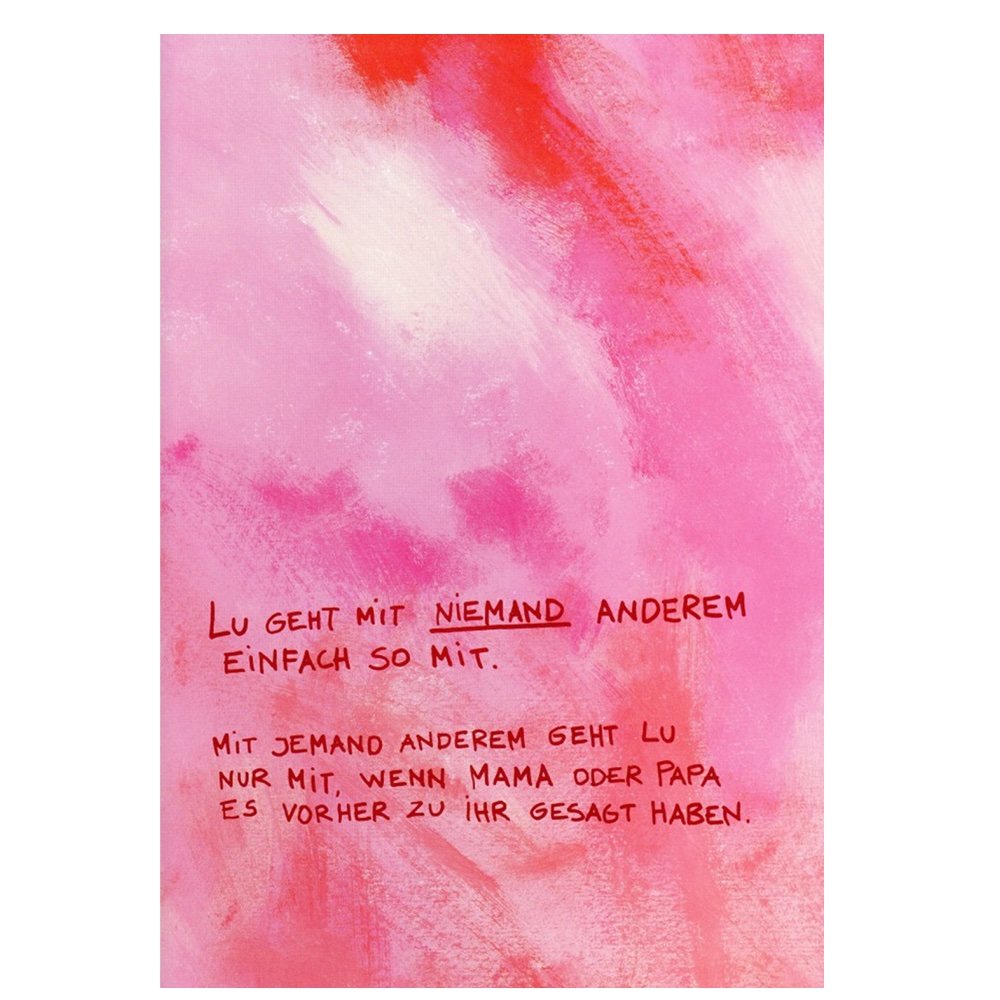 LU GEHT MIT NIEMAND ANDEREM
EINFACH SO MIT.
MIT JEMAND ANDEREM GEHT LU
NUR MIT, WENN MAMA ODER PAPA
ES VORHER ZU IHR GESAGT HABEN.